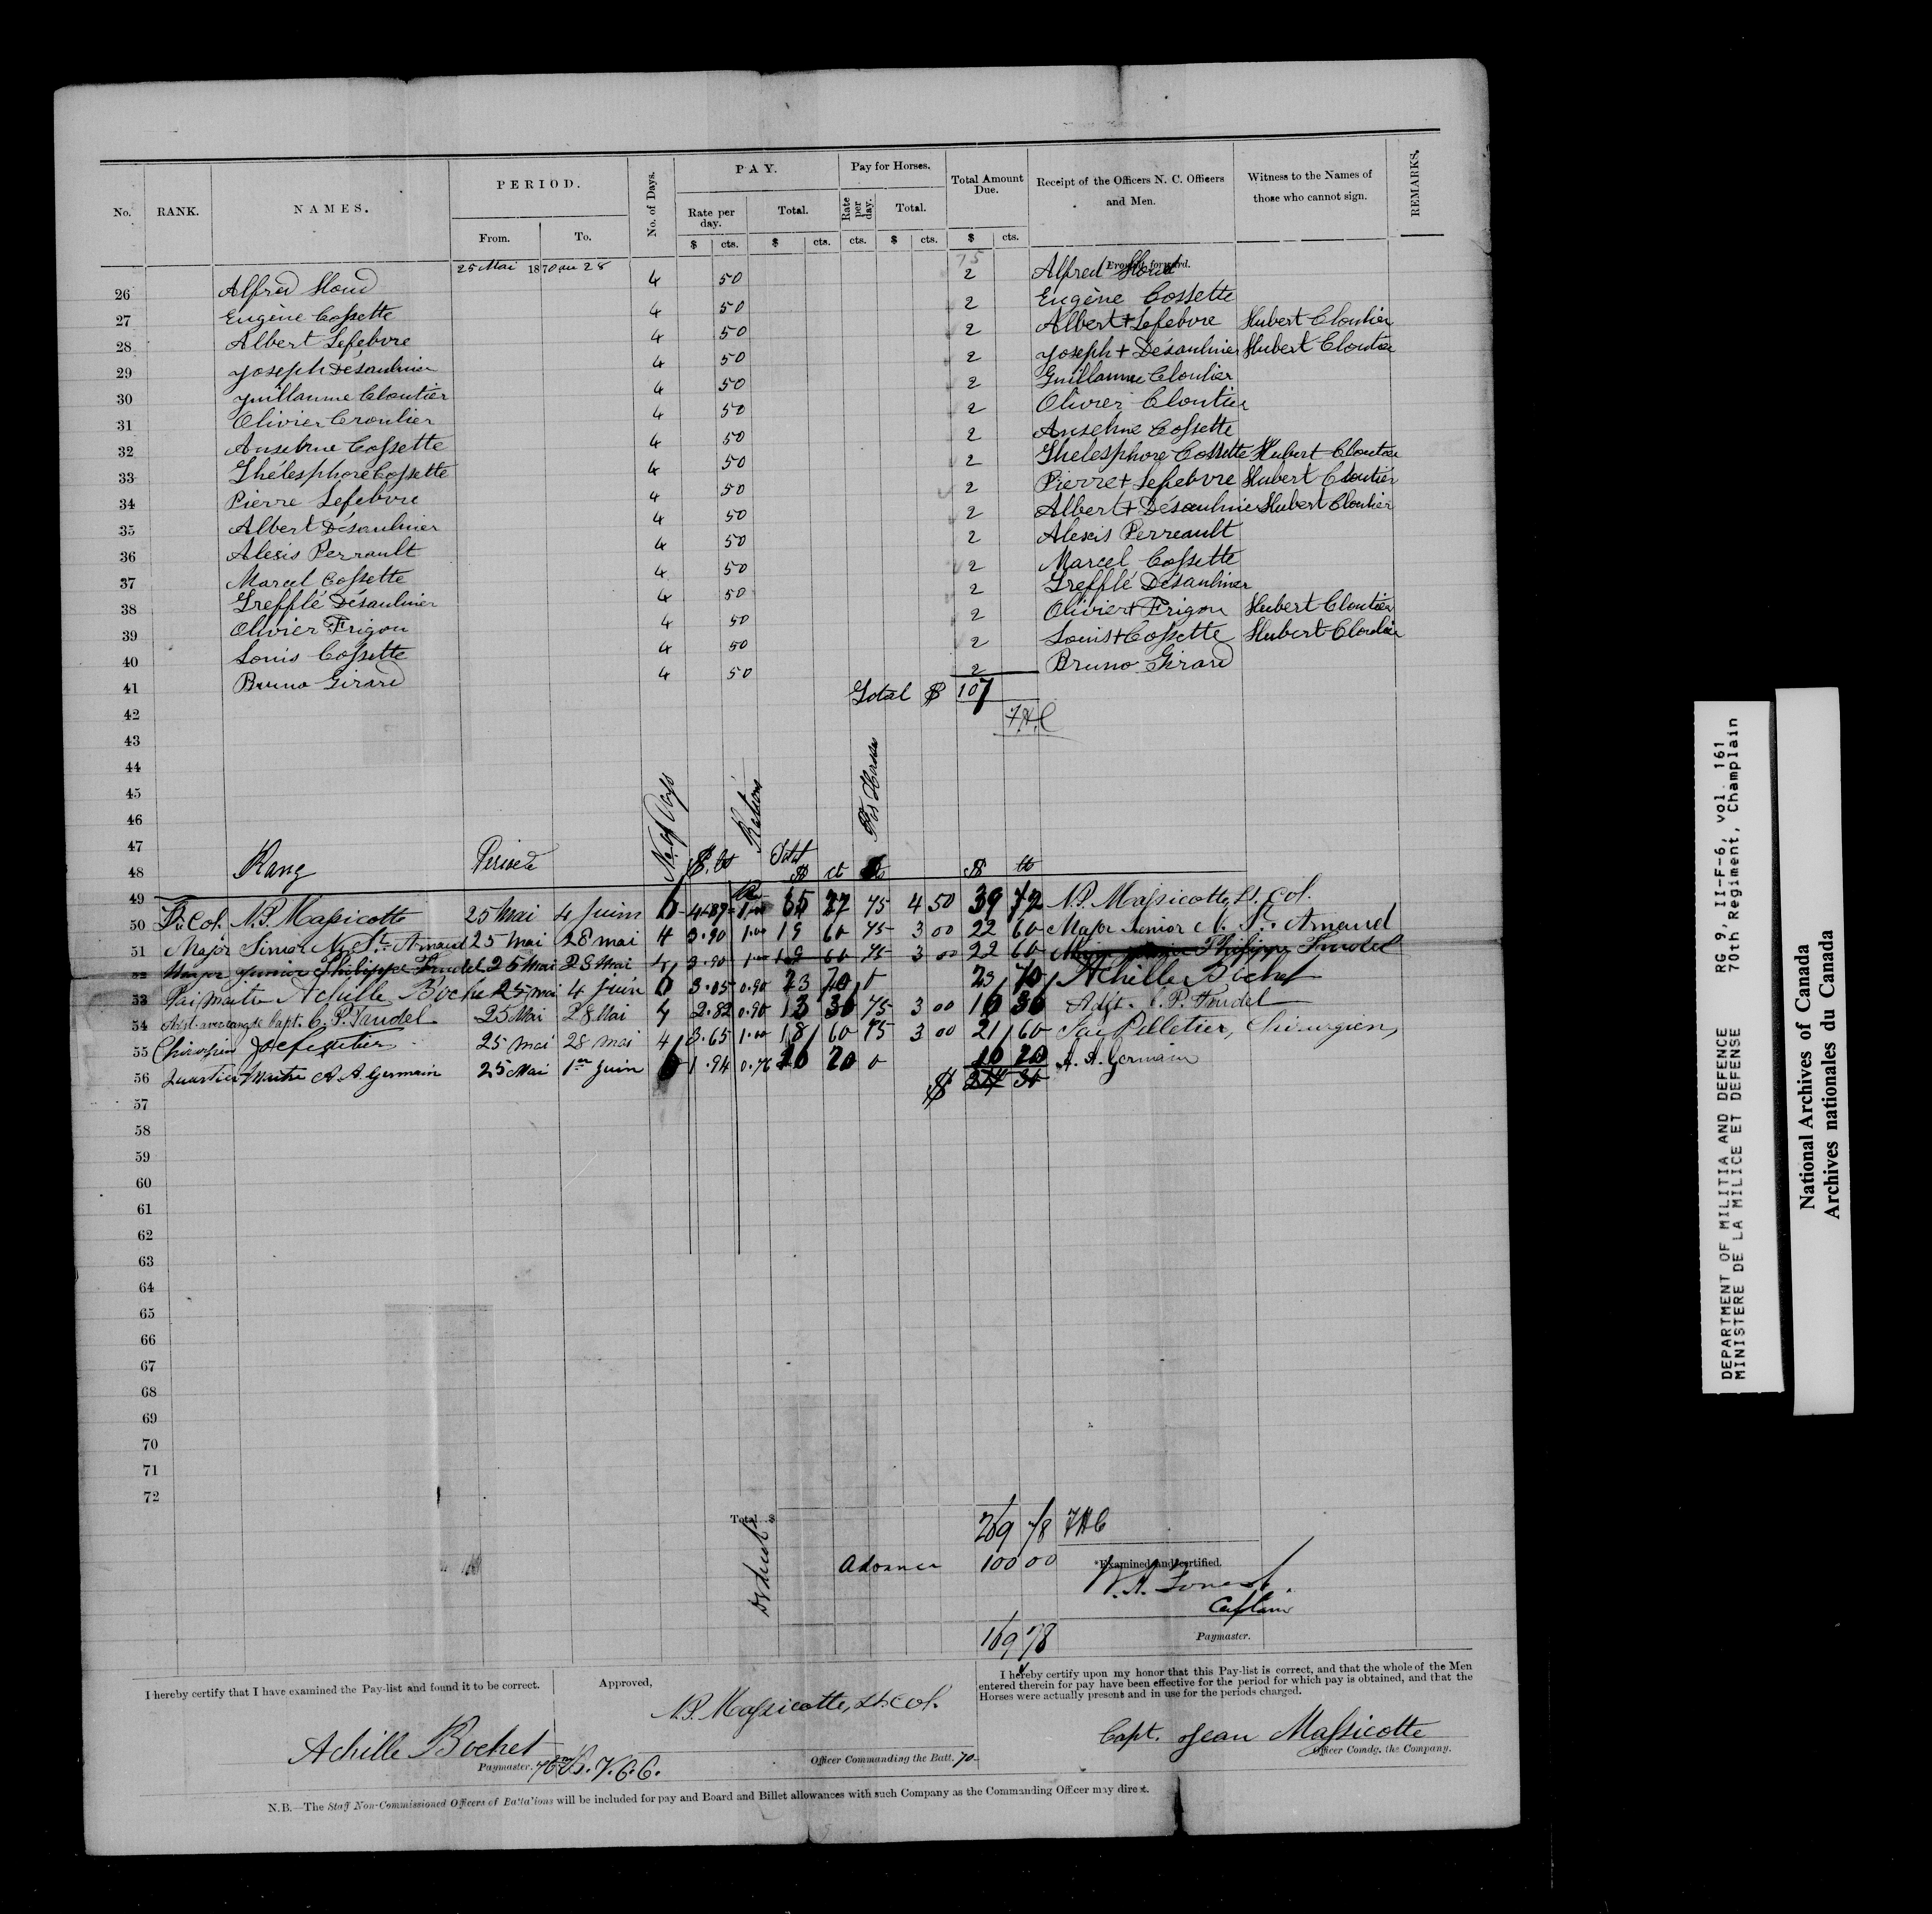 No. RANK. NAMES. PERIOD. No. of Days. PAY. Pay for Horses. Total Amount Due. Receipt of the Officers N. C. Officers and Men. Witness to the Names of those who cannot sign. REMARKS.
From. To. Rate per day. Total. Rate per day. Total.
$ cts. $ cts. cts. $ cts. $ cts.
25 Mai 1870 au 28 75 Brought forward.
26 Alfred Houd 4 50 2 Alfred Houd
27 Eugène Cossette 4 50 2 Eugène Cossette
28 Albert Lefebvre 4 50 2 Albert + Lefebvre Hubert Cloutier
29 Joseph Désaulnier 4 50 2 Joseph + Désaulnier Hubert Cloutier
30 Guillaume Cloutier 4 50 2 Guillaume Cloutier
31 Olivier Cloutier 4 50 2 Olivier Cloutier
32 Anselme Cossette 4 50 2 Anselme Cossette
33 Thélesphore Cossette 4 50 2 Thelesphore Cossette Hubert Cloutier
34 Pierre Lefebvre 4 50 2 Pierre + Lefebvre Hubert Cloutier
35 Albert Désaulnier 4 50 2 Albert + Désaulnier Hubert Cloutier
36 Alexis Perrault 4 50 2 Alexis Perreault
37 Marcel Cossette 4 50 2 Marcel Cossette
38 Trefflé Désaulnier 4 50 2 Trefflé Désaulnier
39 Olivier Frigon 4 50 2 Olivier + Frigon Hubert Cloutier
40 Louis Cossette 4 50 2 Louis + Cossette Hubert Cloutier
41 Bruno Girard 4 50 2 Bruno Girard
Total $ 107
42
43
44
45
46
47
48 Rang Periode No. of Days $. cts Rations Total $ ct For Horses $ cts
49
50 Lt. Col. N. P. Massicotte 25 Mai 4 Juin 6 4.87 1.00 35 22 75 4 50 39 72 N. P. Massicotte, Lt. Col.
51 Major Sinior N. St. Arnaud 25 Mai 28 mai 4 3.90 1.00 19 60 75 3 00 22 60 Major Senior N. St. Arnaud
52 Major Junior Philippe Trudel 25 Mai 28 Mai 4 3.90 1.00 19 60 75 3 00 22 60 Major Junior Philippe Trudel
53 Paimaitre Achille Bochet 25 mai 4 Juin 6 3.05 0.90 23 70 0 23 70 Achille Bochet
54 Adjt. avec rang de Capt. C. P. Trudel 25 Mai 28 Mai 4 2.82 0.90 13 30 75 3 00 16 30 Adjt. C. P. Trudel
55 Chirurgien Jac Pelletier 25 mai 28 mai 4 3.65 1.00 18 60 75 3 00 21 60 Jac Pelletier, Chirurgien,
56 Quartier Maitre A. A. Germain 25 Mai 1er Juin 6 1.94 0.76 16 20 0 16 20 A. A. Germain
57 $
58
59
60
61
62
63
64
65
66
67
68
69
70
71
72
Total $ 269 78 FHC
Deduct Advance 100 00 *Examined and certified,
Captain
169 78 Paymaster.
I hereby certify that I have examined the Pay-list and found it to be correct.
Achille Bochet
Paymaster.
Approved,
N. P. Massicotte, Lt. Col.
Officer Commanding the Batt. 70
I hereby certify upon my honor that this Pay-list is correct, and that the whole of the Men
entered therein for pay have been effective for the period for which pay is obtained, and that the
Horses were actually present and in use for the periods charged.
Capt. Jean Massicotte
Officer Comdg. the Company.
N.B.—The Staff Non-Commissioned Officers of Battalions will be included for pay and Board and Billet allowances with such Company as the Commanding Officer may direct.
DEPARTMENT OF MILITIA AND DEFENCE RG 9, II-F-6, vol. 161
MINISTERE DE LA MILICE ET DEFENSE 70th Regiment, Champlain
National Archives of Canada
Archives nationales du Canada